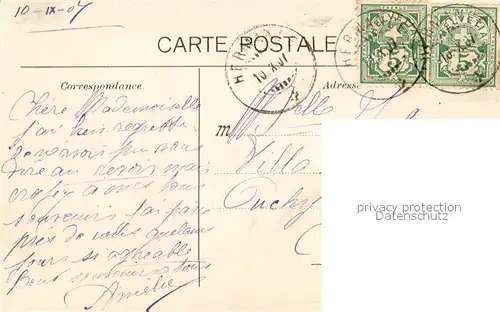 10-IX-07
CARTE POSTALE
Correspondance
Adresse
HERMANCE
10.IX.07
HELVETIA
5
5
Chère Mademoiselle
j'ai bien regretté
de n'avoir pu vous
dire au revoir mais
croyez à mes bons
souvenirs j'ai passé
près de vous quelques
jours si agréable
Bons souvenirs à tous
Amélie
Melle
Villa
Ouchy
privacy protection
Datenschutz